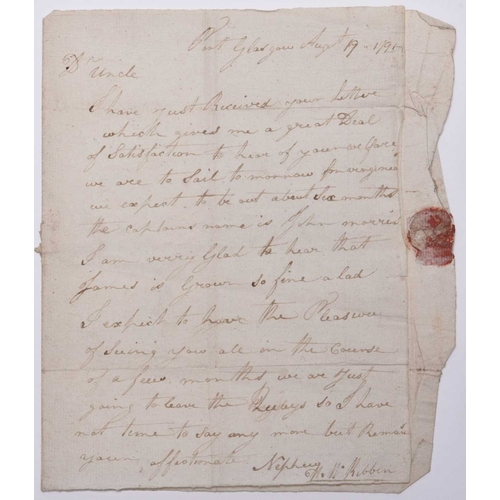 Port Glasgow Augt 19 - 1791
Dr Uncle
I have Just Received your letter
which gives me a great Deal
of Satisfaction to here of your welfare
we are to Sail to morrow for virginea
we expect to be out about Six months
the captains name is John morris
I am verry Glad to hear that
James is Grown so fine a lad
I expect to have the Pleasure
of Seing yow all in the Course
of a few months, we are Just
going to leave the so a have
not time to say any more but Remain
your affectionate Nephew
McKibbin